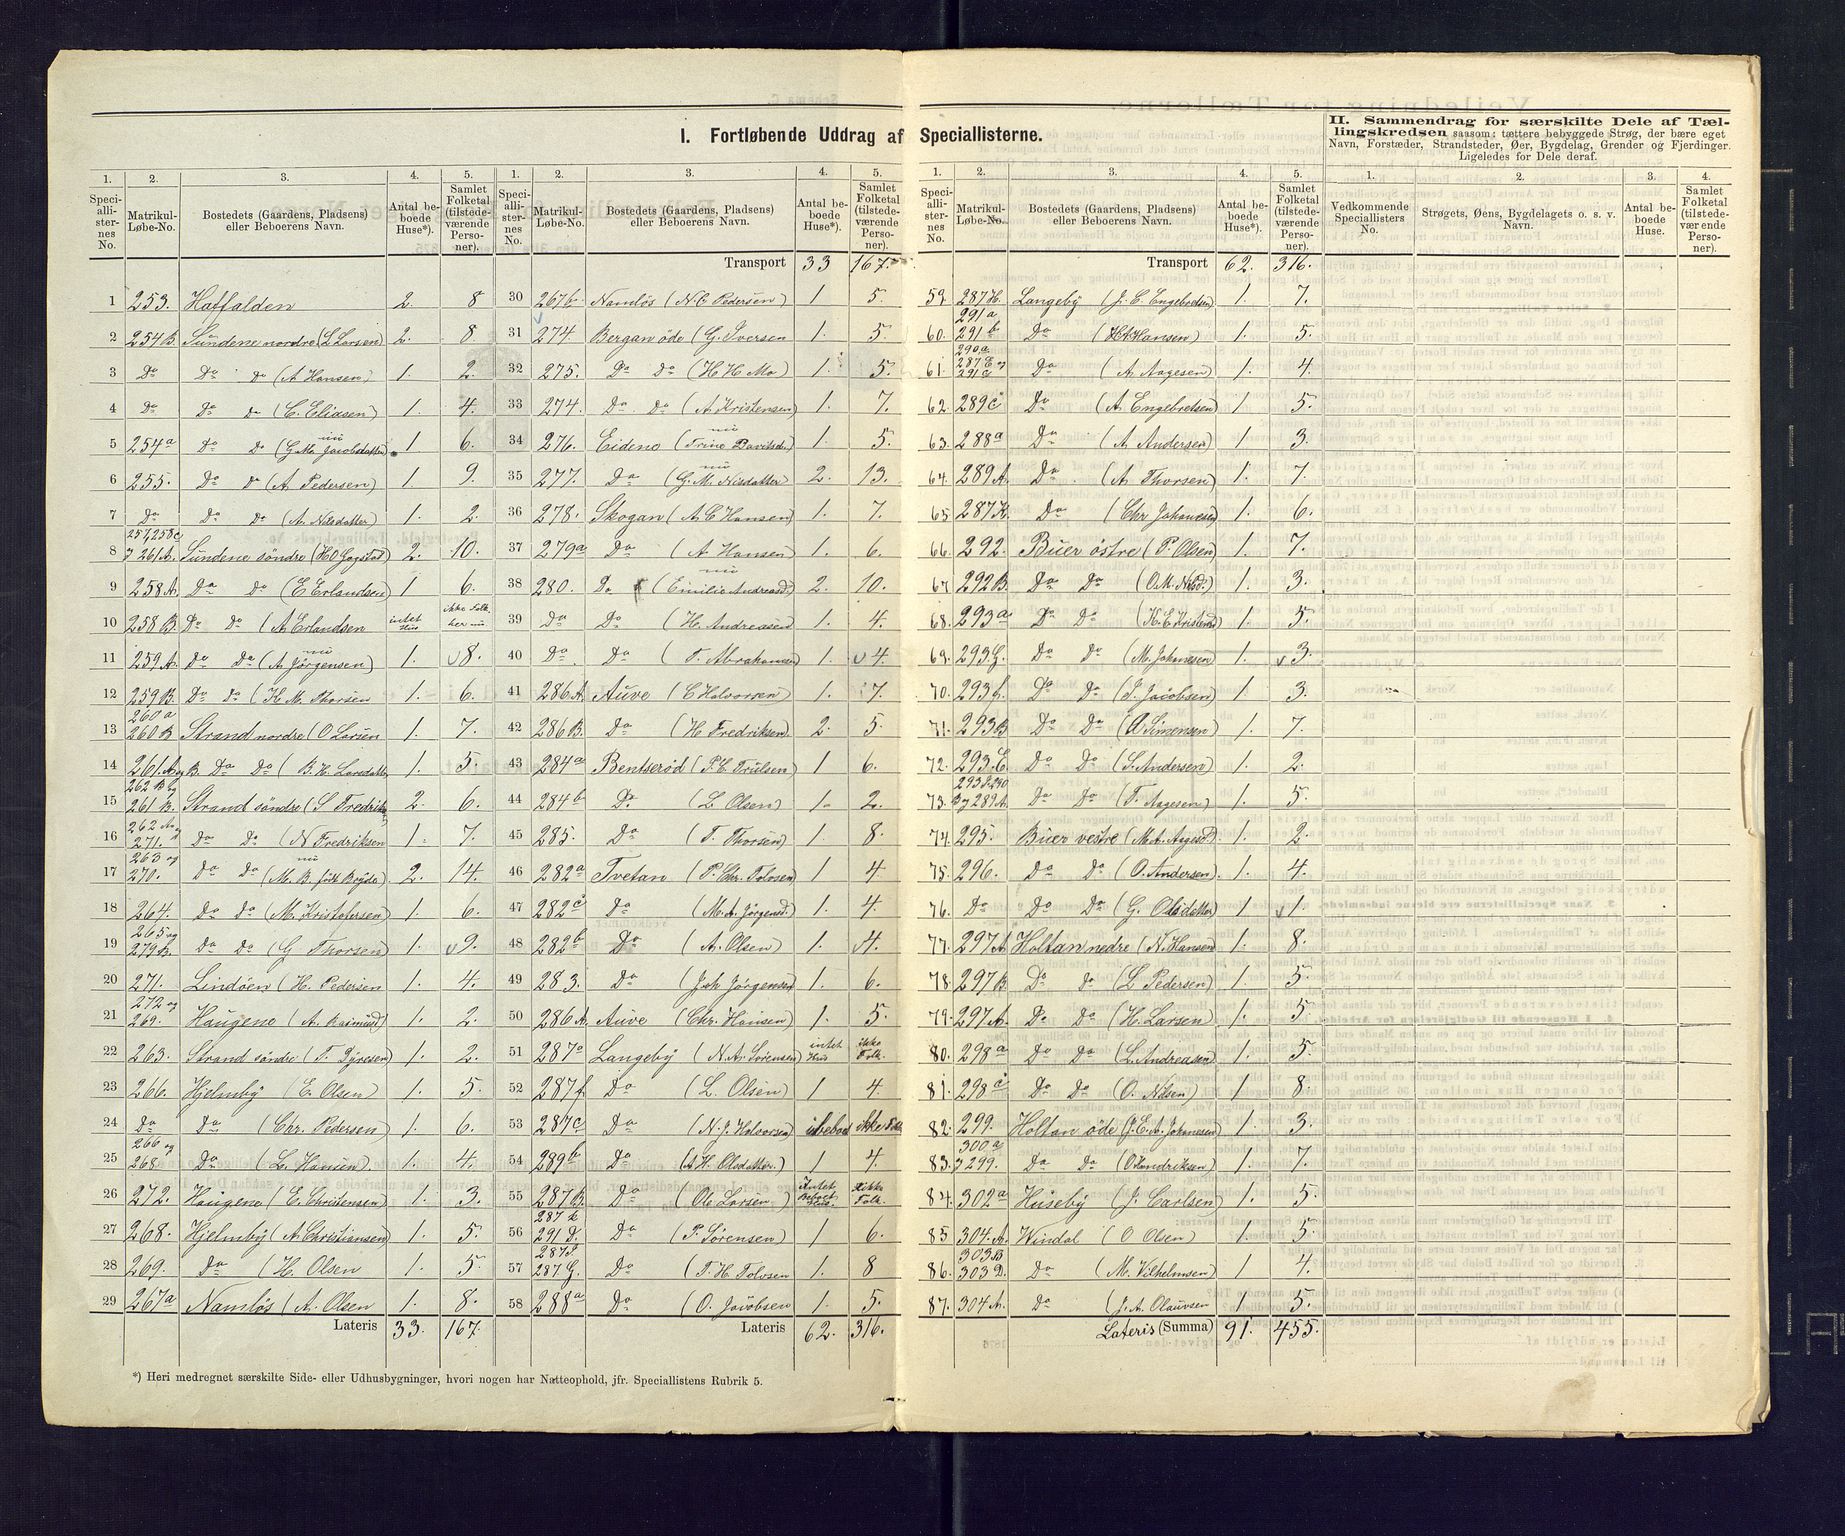 I. Fortløbende Uddrag af Speciallisterne.
II. Sammendrag for særskilte Dele af Tællingskredsen saasom: tættere bebyggede Strøg, der bære eget Navn, Forstæder, Strandsteder, Øer, Bygdelag, Grender og Fjerdinger. Ligeledes for Dele deraf.
1. 2. 3. 4. 5.
Speciallisternes No. Matrikul-Løbe-No. Bostedets (Gaardens, Pladsens) eller Beboerens Navn. Antal beboede Huse*). Samlet Folketal (tilstedeværende Personer).
1 253. Haffalden 2. 8
2 254B. Sundene nordre (L Larsen) 2. 8.
3 Do Do do (A Hansen) 1. 2.
4 Do Do do (C. Eliasen) 1. 4.
5 254a Do Do (G. Ma. Jacobsdatter) 1 6.
6 255. Do Do (A. Pedersen) 1 9.
7 Do Do Do (A. Nilsdatter) 1. 2.
8 257, 258c & 261A. Sundene söndre (H O Gogstad) 2. 10.
9 258A. Do Do (E Erlandsen) 1 6.
10 258B. Do Do (A Erlandsen intet Hus ikke Folk her nu
11 259A. Do Do (A Jörgensen) 1. 8.
12 259B. Do Do (H. M. Thorsen 1. 6.
13 260a 260B Strand nordre (O Larsen 1. 7.
14 261.A og B. Do Do (B. H. Larsdatter 1. 5.
15 262 B og 261 B. Strand söndre (S Fredriks 2. 6.
16 262 A og 271. Do Do (N Fredriksen 1. 7.
17 263 og 270. Do Do (M. B. 2. 14.
18 264. Do Do (M. Kristofersen) 1. 6.
19 265 og 279B. Do Do (G Thorsen) 1. 9.
20 271. Lindöen (H. Pedersen 1. 4.
21 272 og 269. Haugene (A. Rasmusd) 1. 2.
22 263. Strand söndre (T. Dyresen) 1. 2.
23 266. Hjelmby (E. Olsen) 1. 5.
24 Do Do (Chr. Pedersen) 1. 6.
25 266 og 268. Do (L. Hansen). 1. 4.
26 272. Haugene (E. Christensen) 1. 3.
27 268. Hjelmby (A. Christiansen) 1. 5.
28 269. Do (H. Olsen 1. 5.
29 267a Namlös (A. Olsen 1. 8.
Lateris 33. 167.
1. 2. 3. 4. 5.
Speciallisternes No. Matrikul-Løbe-No. Bostedets (Gaardens, Pladsens) eller Beboerens Navn. Antal beboede Huse*). Samlet Folketal (tilstedeværende Personer).
Transport 33 167.
30 267b Namlös (N. C Pedersen) 1 5.
31 274. Bergan öde (G. Iversen 1. 5.
32 275. Do Do (H H Mo) 1. 5.
33 274. Do Do (A Kristensen) 1. 7.
34 276. Eidene (Trine Davidsdr) 1. 5.
35 277. Do (G. M. Nilsdatter 2. 13.
36 278. Skogan (A. C Hansen) 1. 7.
37 279a Do (A Hansen) 1. 6.
38 280. Do (Emilie Andreasd) 2. 10.
39 Do Do (H. Andreasen 1. 4.
40 Do. Do (T. Abrahamsen) 1. 4.
41 286A Auve (C Halvorsen) 1. 7.
42 286B. Do (H Fredriksen). 2. 5
43 284a Bentserød (P. C. Trulsen) 1 6.
44 284b Do (L Olsen) 1 2.
45 285. Do (T. Thorsen) 1. 8.
46 282a Tvetan (P. Chr. Tolvsen) 1 4
47 282c Do (M. A. Jörgensd). 1. 4.
48 282b Do (A. Olsen) 1. 4.
49 283. Do (Joh Jörgensen) 1. 6.
50 286A. Auve (Chr. Hansen) 1. 5.
51 287a Langeby (N. A. Sörensen) intet Hus ikke Folk.
52 287f. Do (L. Olsen) 1 4
53 287c. Do (N. J. Halvorsen) ubeboet ikke Folk
54 289b Do (A H. Olsdatter) 1 4.
55 287B. Do (Ole Larsen) Intet Beboet Hus Ikke Folk.
56 287k 291 D. Do (P. Sörensen) 1 6.
57 287 G. Do (T. H Tolvsen 1. 8
58 288a Do (O. Jacobsen 1. 5.
Lateris 62. 316.
*) Heri medregnet særskilte Side- eller Udhusbygninger, hvori nogen har Natteophold, jfr. Speciallistens Rubrik 5.
1. 2. 3. 4. 5.
Speciallisternes No. Matrikul-Løbe-No. Bostedets (Gaardens, Pladsens) eller Beboerens Navn. Antal beboede Huse*). Samlet Folketal (tilstedeværende Personer).
Transport 62. 316.
59 287H. Langeby (J. E. Engebretsen) 1. 7.
60. 291a 291b Do (H. A Hansen) 1. 5.
61. 290a 287E og 291c Do (A. Aagesen) 1. 4.
62. 289c Do (A. Engebretsen 1. 5.
63. 288a Do (A. Andersen 1. 3.
64. 289A. Do (A Thorsen) 1. 7.
65 287K. Do (Chr Johnsen) 1 6.
66. 292. Buer östre (P. Olsen) 1. 7.
67. 292B. Do Do (O. M. Nilsd.) 1. 3.
68. 293a Do Do (K. E. Kristens) 1. 5.
69. 293G. Do Do (M. Johnesen 1. 3.
70. 293f. Do Do (J. Jacobsen) 1. 3.
71. 293B Do Do (A Simensen) 1. 7.
72. 293E Do Do (S. Andersen) 1. 2.
73. 289A. Do Do (T. Aagesen) 1. 5.
74. 295. Buer vestre (M. A. Aagesd) 1. 2.
75. 296. Do Do (O. Andersen). 1. 4.
76. Do Do Do (G. Olsdatter) 1. 1.
77. 297A Holtan nedre (N. Hansen 1. 8.
78. 297B Do do (L Pedersen) 1. 5.
79. 297A. Do Do (H. Larsen) 1. 5.
80. 298a Do Do (L. Andreasen) 1. 5.
81. 298c Do Do (O. Nilsen) 1 8.
82. 299. Holtan öde (J. E. A. Johnesen) 1. 3.
83. 300a & 299. Do Do (O. Hendriksen) 1. 7.
84. 302a Huseby (J. Carlsen) 1. 5.
85 304.A. Windal (O Olsen) 1. 5.
86. 303B 303D. Do (M. Vilhelmsen) 1 4.
87. 304A. Do (J. A. Olausen 1. 5.
Lateris (Summa) 91. 455.
1. 2. 3. 4.
Vedkommende Speciallisters No. Strøgets, Øens, Bygdelagets o. s. v. Navn. Antal beboede Huse. Samlet Folketal (tilstedeværende Personer).